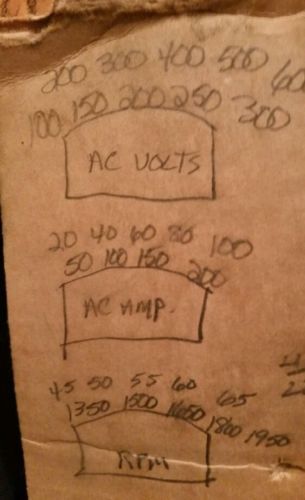 200 300 400 500 60
100 150 200 250 300
AC VOLTS
20 40 60 80 100
50 100 150 200
AC AMP.
45 50 55 60 65
1350 1500 1650 1800 1950
RPM